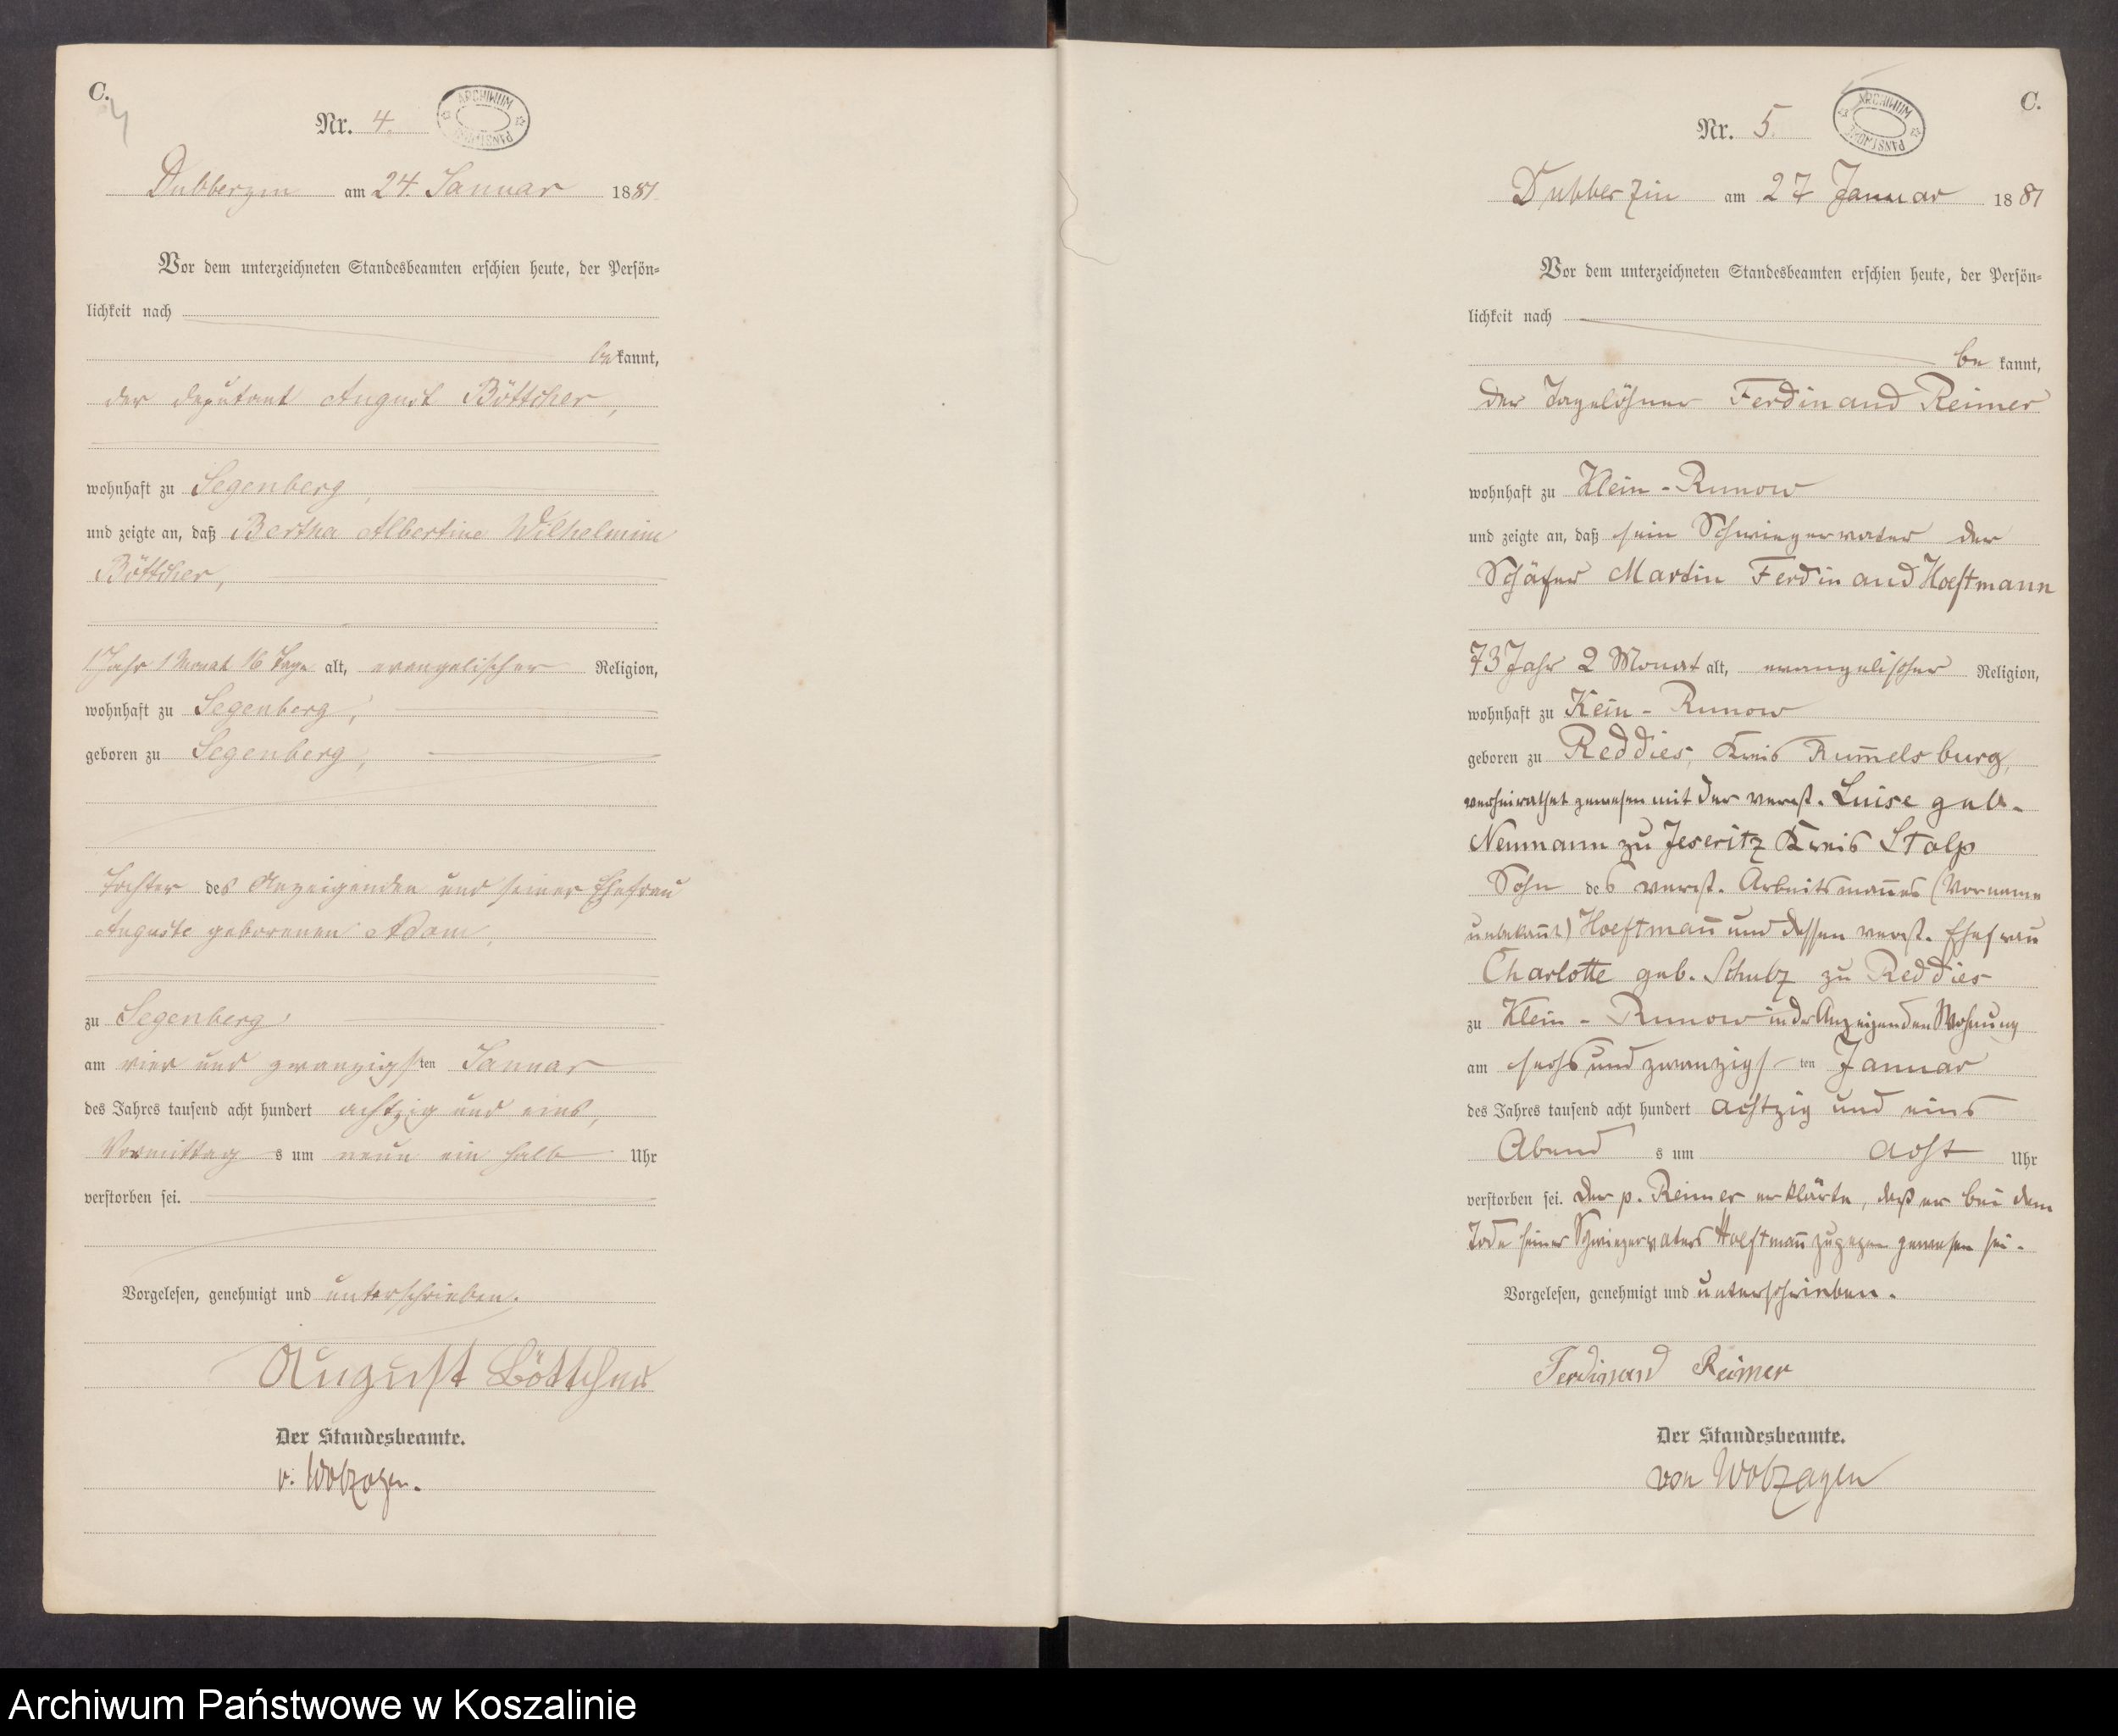 C.
4
Nr. 4.
ARCHIWUM PAŃSTWOWE
Dubberzin am 24. Januar 1881.
Vor dem unterzeichneten Standesbeamten erschien heute, der Persön=
lichkeit nach
bekannt,
der Deputant August Böttcher,
wohnhaft zu Segenberg,
und zeigte an, daß Bertha Albertine Wilhelmine
Böttcher,
1 Jahr 1 Monat 16 Tage alt, evangelischer Religion,
wohnhaft zu Segenberg,
geboren zu Segenberg,
Tochter des Anzeigenden und seiner Ehefrau
Auguste geborenen Adam,
zu Segenberg,
am vier und zwanzigsten Januar
des Jahres tausend acht hundert achtzig und eins,
Vormittags um neun ein halb Uhr
verstorben sei.
Vorgelesen, genehmigt und unterschrieben.
August Böttcher
Der Standesbeamte.
v. Wolzogen.
C.
Nr. 5.
ARCHIWUM PAŃSTWOWE
Dubberzin am 27 Januar 1881
Vor dem unterzeichneten Standesbeamten erschien heute, der Persön=
lichkeit nach
be kannt,
der Tagelöhner Ferdinand Reimer
wohnhaft zu Klein-Runow
und zeigte an, daß sein Schwiegervater der
Schäfer Martin Ferdinand Hoeftmann
73 Jahr 2 Monat alt, evangelischer Religion,
wohnhaft zu Klein-Runow
geboren zu Reddies, Kreis Rum̄elsburg,
verheirathet gewesen mit der verst. Luise geb.
Neumann zu Jeseritz Kreis Stolp
Sohn des verst. Arbeitsman̄es (Vorname
unbekan̄t) Hoeftman̄ und dessen verst. Ehefrau
Charlotte geb. Schulz zu Reddies
zu Klein-Runow in der Anzeigenden Wohnung
am sechs und zwanzigsten Januar
des Jahres tausend acht hundert achtzig und eins
Abends um acht Uhr
verstorben sei. Der p. Reimer erklärte, daß er bei dem
Tode seines Schwiegervaters Hoeftman̄ zugegen gewesen sei.
Vorgelesen, genehmigt und unterschrieben.
Ferdinand Reimer
Der Standesbeamte.
von Wolzogen
Archiwum Państwowe w Koszalinie